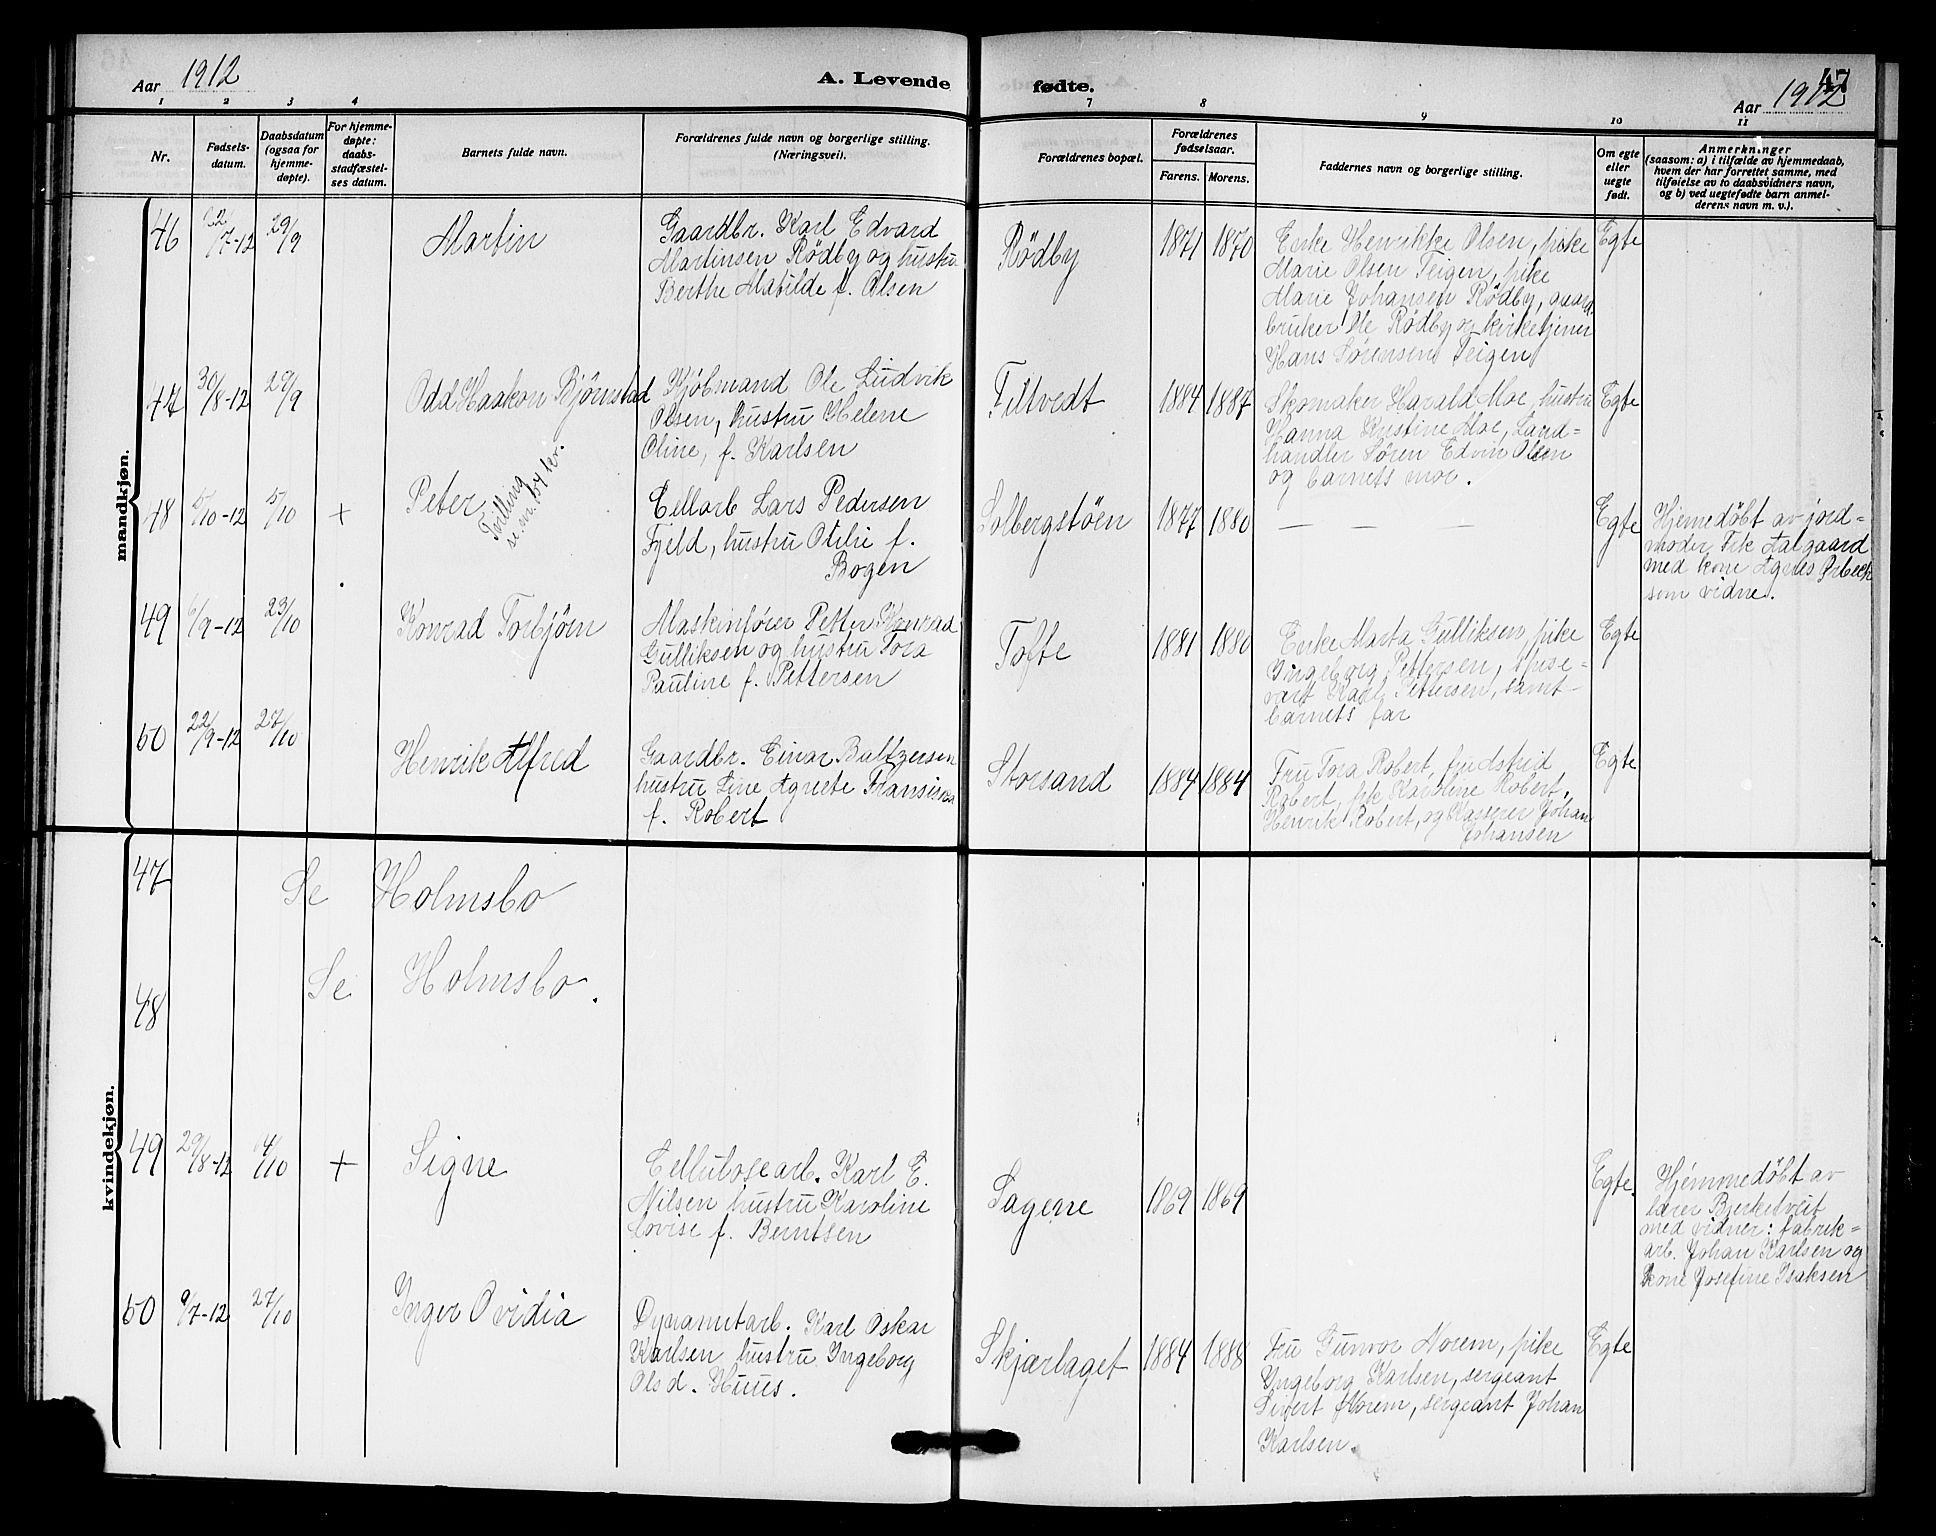 Aar 1912
A. Levende
fødte.
47
Aar 1912
1 2 3 4
7 8 9 10 11
Nr.
Fødsels-
datum.
Daabsdatum
(ogsaa for
hjemme-
døpte).
For hjemme-
døpte:
daabs-
stadfæstel-
ses datum.
Barnets fulde navn.
Forældrenes fulde navn og borgerlige stilling.
(Næringsvei).
Forældrenes bopæl.
Forældrenes
fødselsaar.
Farens. Morens.
Faddernes navn og borgerlige stilling.
Om egte
eller
uegte
født.
Anmerkninger
(saasom: a) i tilfælde av hjemmedaab,
hvem der har forrettet samme, med
tilføielse av to daabsvidners navn,
og b) ved uegtefødte barn anmel-
derens navn m. v.).
mandkjøn.
46 /7-12 29/9 Martin
Gaardbr. Karl Edvard
Martinsen Rödby og hustru
Berthe Matilde f. Olsen
Rödby 1871 1870
Enke Henrikke Olsen, pike
Marie Olsen Teigen, pike
Marie Johansen Rödby, gaard
bruker Ole Rödby og kirketjener
Hans Sørensen Teigen
Egte
47 30/8-12 29/9 Odd Haakon Bjørnstad
Kjøbmand Ole Ludvik
Olsen, hustru Helene
Oline, f. Karlsen
Filtvedt 1884 1887
Skomaker Harald Moe, hustru
Hanna Kristine Moe, Land-
handler Søren Edvin Olsen
og barnets mor.
Egte
48 5/10-12 5/10 + Peter
Tvilling
se n. 54 kv.
Cellarb Lars Pedersen
Fjeld, hustru Otilie f.
Bogen
Solbergstöen 1877 1880
— — —
Egte
Hjemedøbt av jord-
moder Frk Aalgaard
med kone Agnes
som vidne.
49 6/9-12 23/10 Konrad Torbjørn
Maskinfører Petter Konrad
Gulliksen og hustru Tora
Pauline f. Pettersen
Tofte 1881 1880
Enke Marta Gulliksen, pike
Ingeborg Pettersen, spise-
vert Karl Pettersen, samt
barnets far
Egte
50 22/9-12 27/10 Henrik Alfred
Gaardbr. Einar Baltzersen
hustru Line Agnete Fransisca
f. Robert
Storsand 1884 1884
Fru Tora Robert,
Robert, frk Karoline Robert,
Henrik Robert, og Kasserer Johan
Johansen
Egte
kvindekjøn.
47 Se Holmsbo
48 Se Holmsbo.
49 29/8-12 /10 + Signe
Cellulosearb. Karl E.
Nilsen hustru Karoline
Lovise f. Berntsen
Sagene 1869 1869
Egte.
Hjemmedøbt av
lærer Bjerketveit
med vidner: fabrik-
arb. Johan Karlsen og
kone Josefine Isaksen
50 9/7-12 27/10 Inger Ovidia
Dynamitarb. Karl Oskar
Karlsen hustru Ingeborg
Olsd. Huus.
Skjærlaget 1884 1888
Fru Gunvor Norem, pike
Ingeborg Karlsen, sergeant
Sivert Norem, sergeant Johan
Karlsen.
Egte